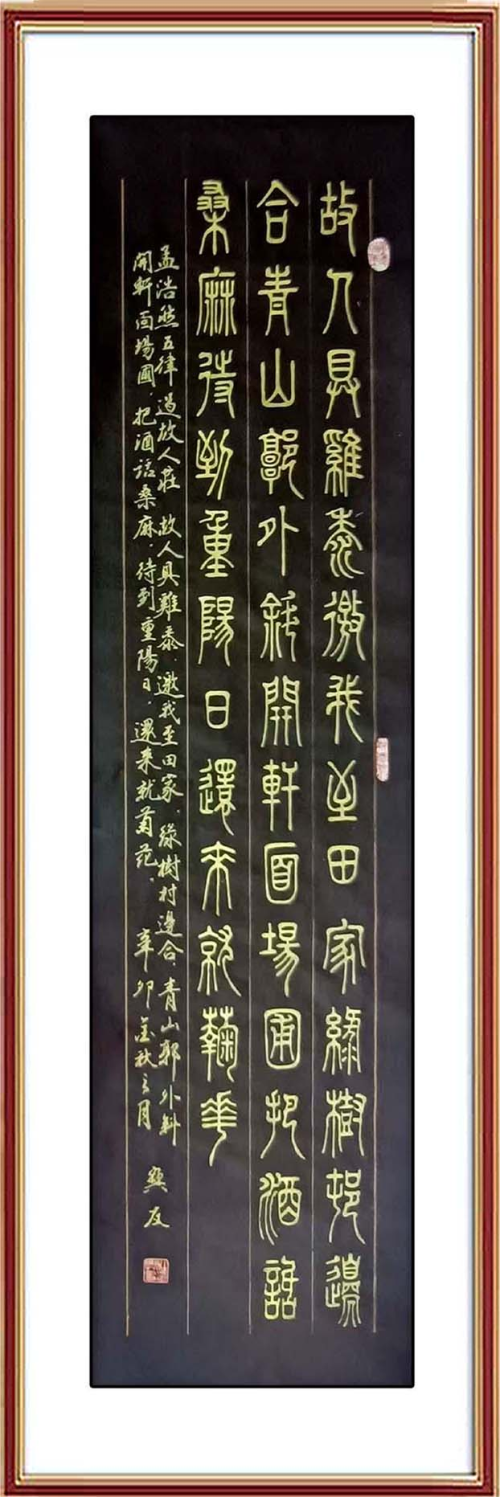 故人具雞黍邀我至田家綠樹邨邊
合青山郭外斜開軒面場圃把酒話
桑麻待到重陽日還來就蘜華
孟浩然五律 過故人莊 故人具雞黍.邀我至田家.綠樹村邊合.青山郭外斜
開軒面場圃.把酒話桑麻.待到重陽日.還來就菊花. 辛卯金秋之月 友